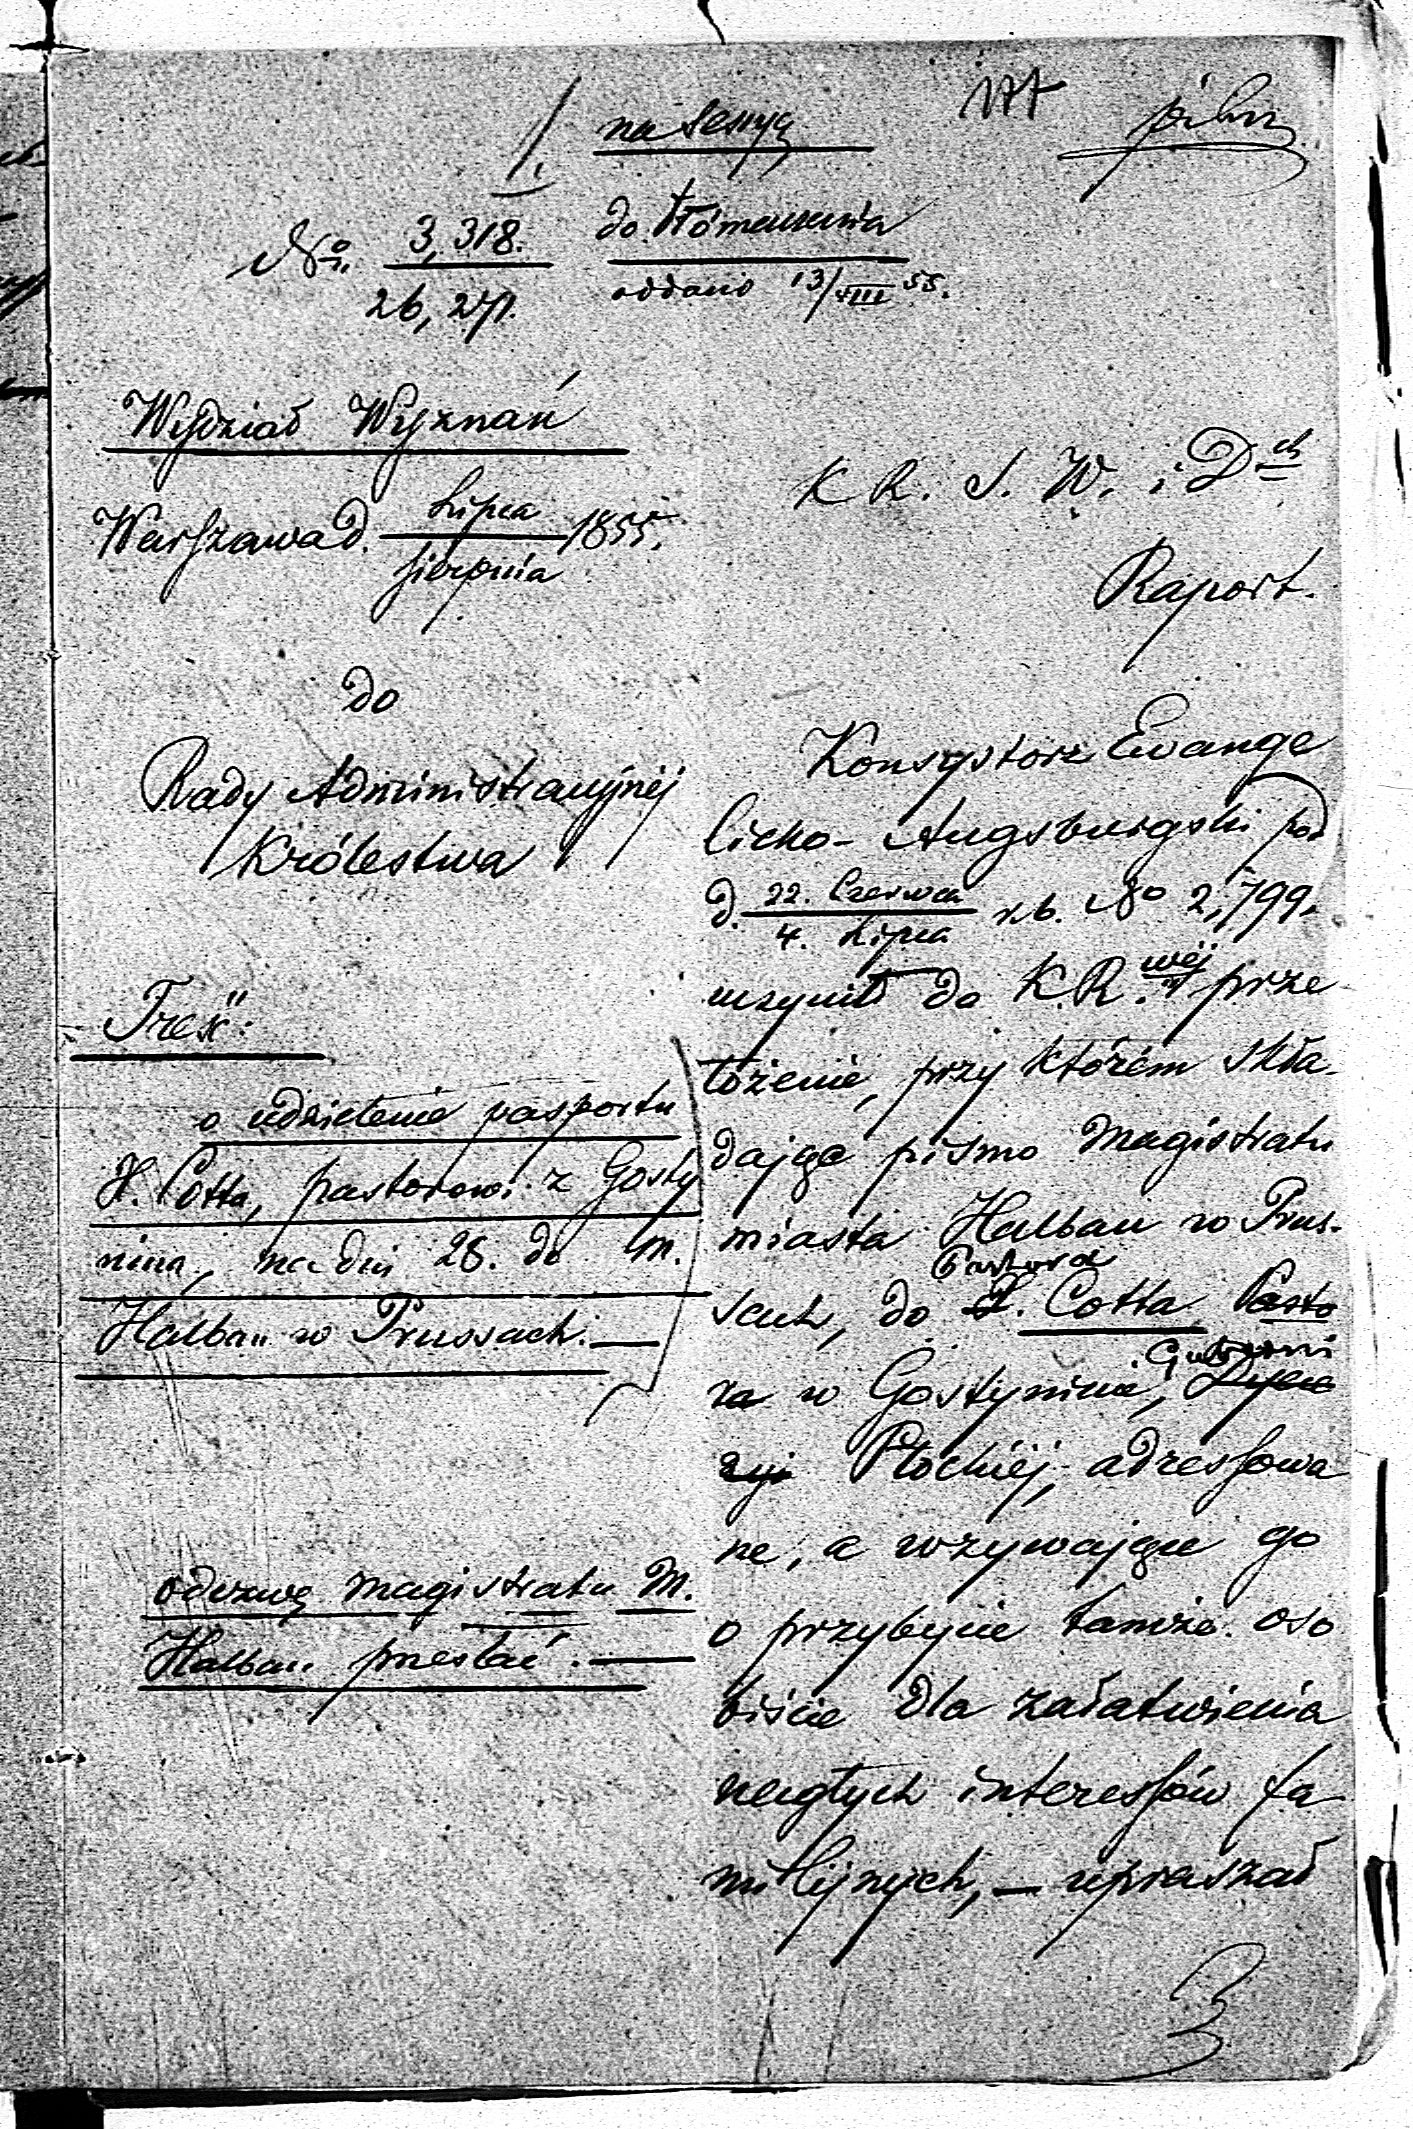 na sessyą
pilne
1.
do tłómaczenia
No. 3,318. / 26,271.
oddano 13/VIII 55.
Wydział Wyznań
K R. S. W. i D-ch
Warszawa d. Lipca / Sierpnia 1855.
Raport.
do
Rady Administracyjnéj
Królestwa
Treść:
o udzielenie pasportu
H. Cotta, pastorowi z Gosty
nina, na dni 28. do M.
Halbau w Prussach.
odezwę magistratu M.
Halbau przesłać.
Konsystorz Ewange
licko-Augsburgski pod
d. 22. Czerwca / 4. Lipca r.b. No 2,799.
uczynił do K.R.wéj prze
łożenie, przy którém skła-
dając pismo Magistratu
miasta Halbau w Prus-
Pastora
sach, do H. Cotta Pasto
Gubernii
ra w Gostyninie, Dyece
zyi Płockiéj, adressowa
ne, a wzywające go
o przybycie tamże oso
biście dla załatwienia
nagłych interessów fa
milijnych, — upraszał